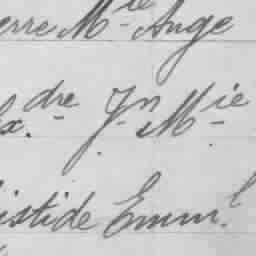 erre Mle Ange
x.dre Jn Mie
istide Emml.